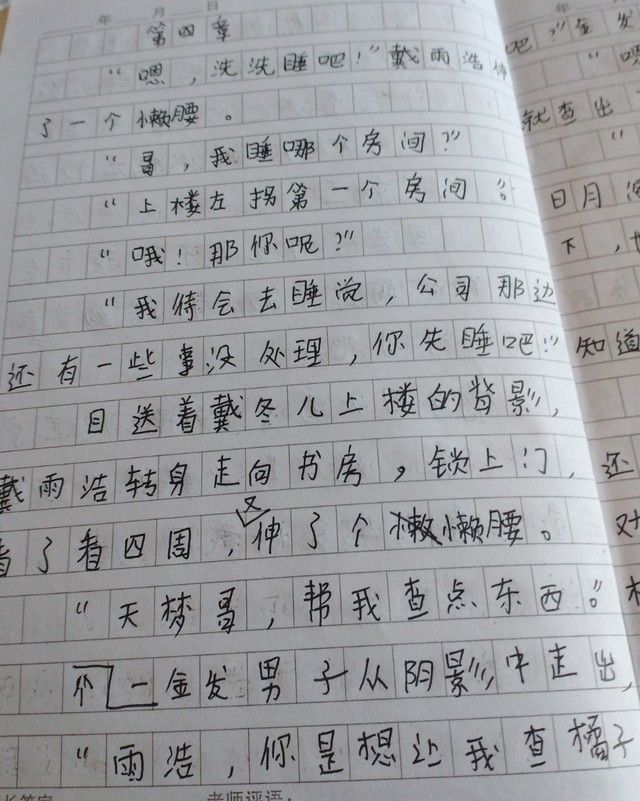 年 月 日
第四章
“嗯，洗洗睡吧！”戴雨浩伸
了一个懒腰。
“哥，我睡哪个房间？”
“上楼左拐第一个房间。”
“哦！那你呢？”
“我待会去睡觉，公司那边
还有一些事没处理，你先睡吧！”
目送着戴冬儿上楼的背影，
戴雨浩转身走向书房，锁上门，
看了看四周，又伸了个懒腰。
“天梦哥，帮我查点东西。”
一个金发男子从阴影中走出，
“雨浩，你是想让我查橘子
老师评语：
年
吧？”金发
“嗯
就查出了
“
日月
下，
知道
还
对